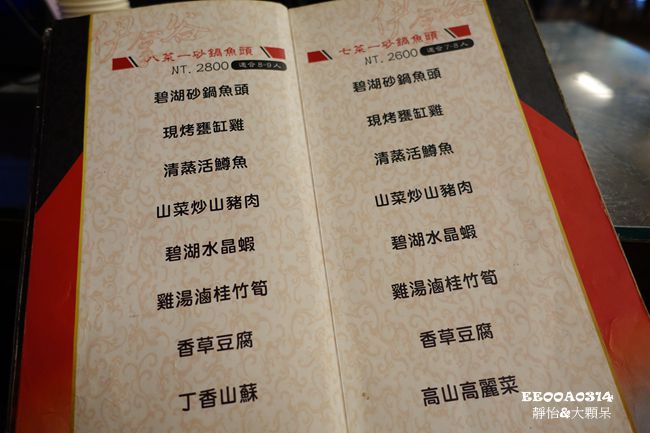 八菜一砂鍋魚頭
NT. 2800 適合8-9人
碧湖砂鍋魚頭
現烤甕缸雞
清蒸活鱒魚
山菜炒山豬肉
碧湖水晶蝦
雞湯滷桂竹筍
香草豆腐
丁香山蘇
七菜一砂鍋魚頭
NT. 2600 適合7-8人
碧湖砂鍋魚頭
現烤甕缸雞
清蒸活鱒魚
山菜炒山豬肉
碧湖水晶蝦
雞湯滷桂竹筍
香草豆腐
高山高麗菜
EE00A0314
靜怡&大顆呆